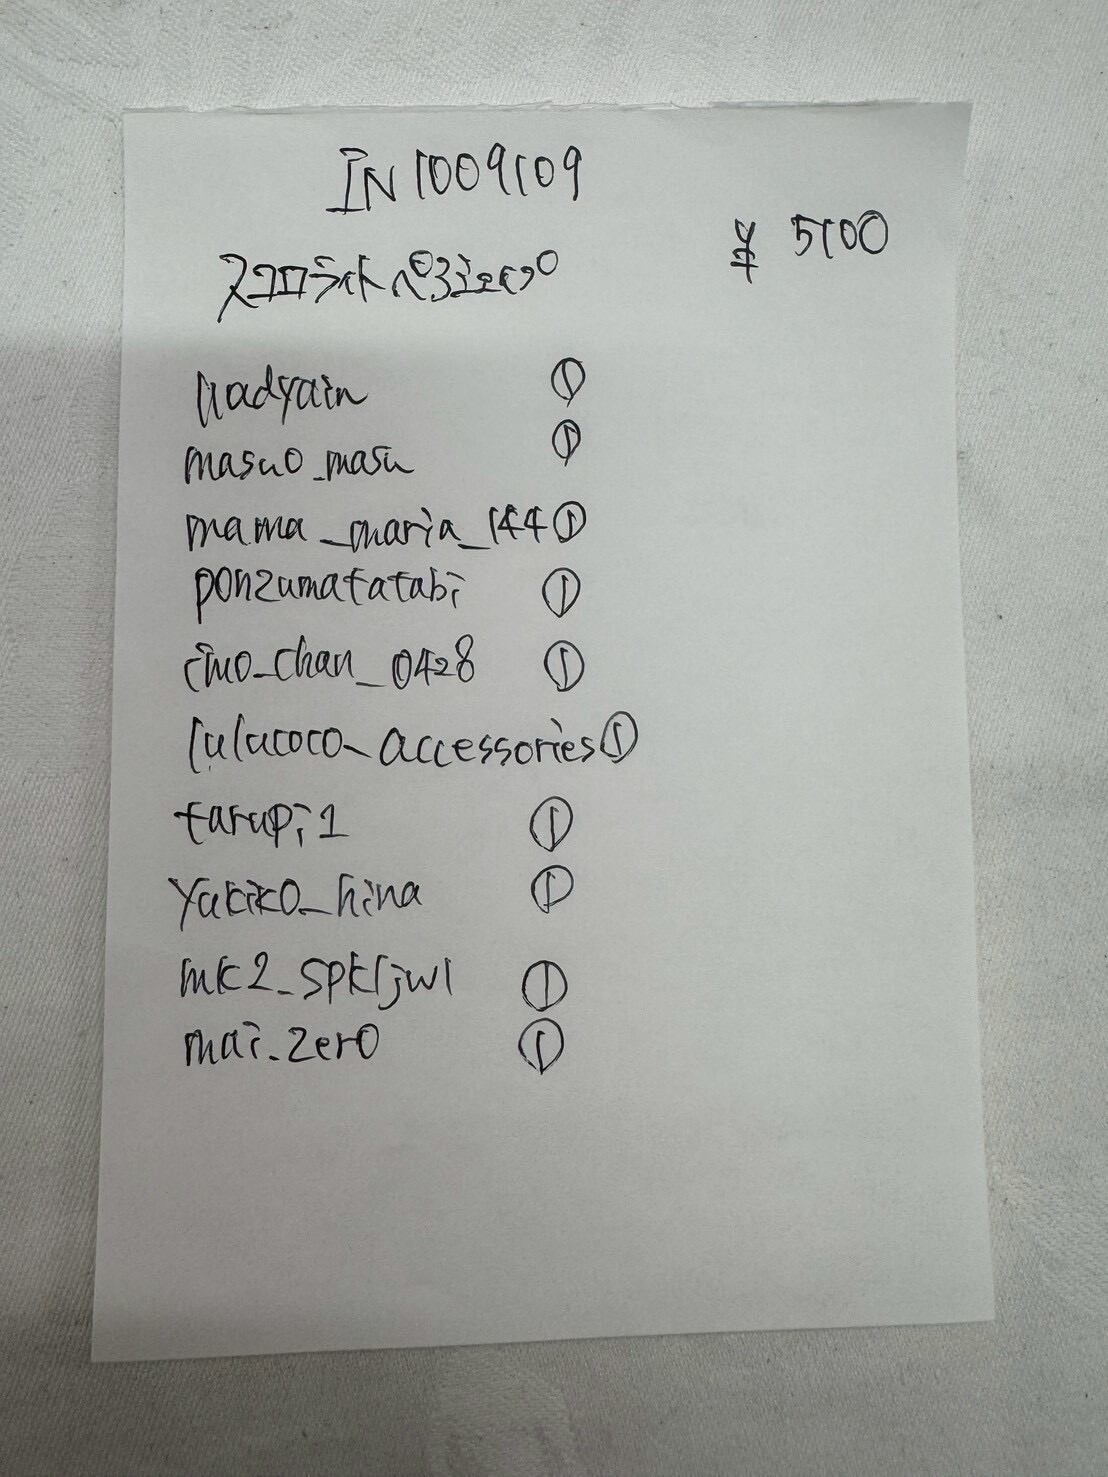 IN1009109
¥ 5100
スコロライト
hadyain ①
masuo_masu ①
mama_maria_144 ①
ponzumatatabi ①
imo_chan_0428 ①
lulucoco_accessories ①
tarupi1 ①
yukiko_hina ①
mk2_spkljwl ①
mai.zero ①